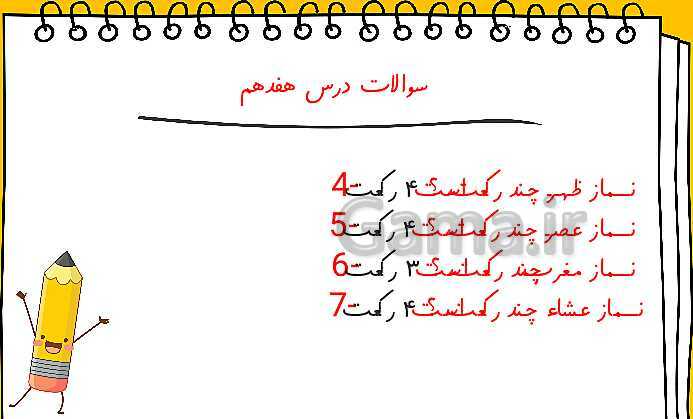 سوالات درس هفدهم
4- نماز ظهر چند رکعت است؟ ۴ رکعت
5- نماز عصر چند رکعت است؟ ۴ رکعت
6- نماز مغرب چند رکعت است؟ ۳ رکعت
7- نماز عشاء چند رکعت است؟ ۴ رکعت
Gama.ir